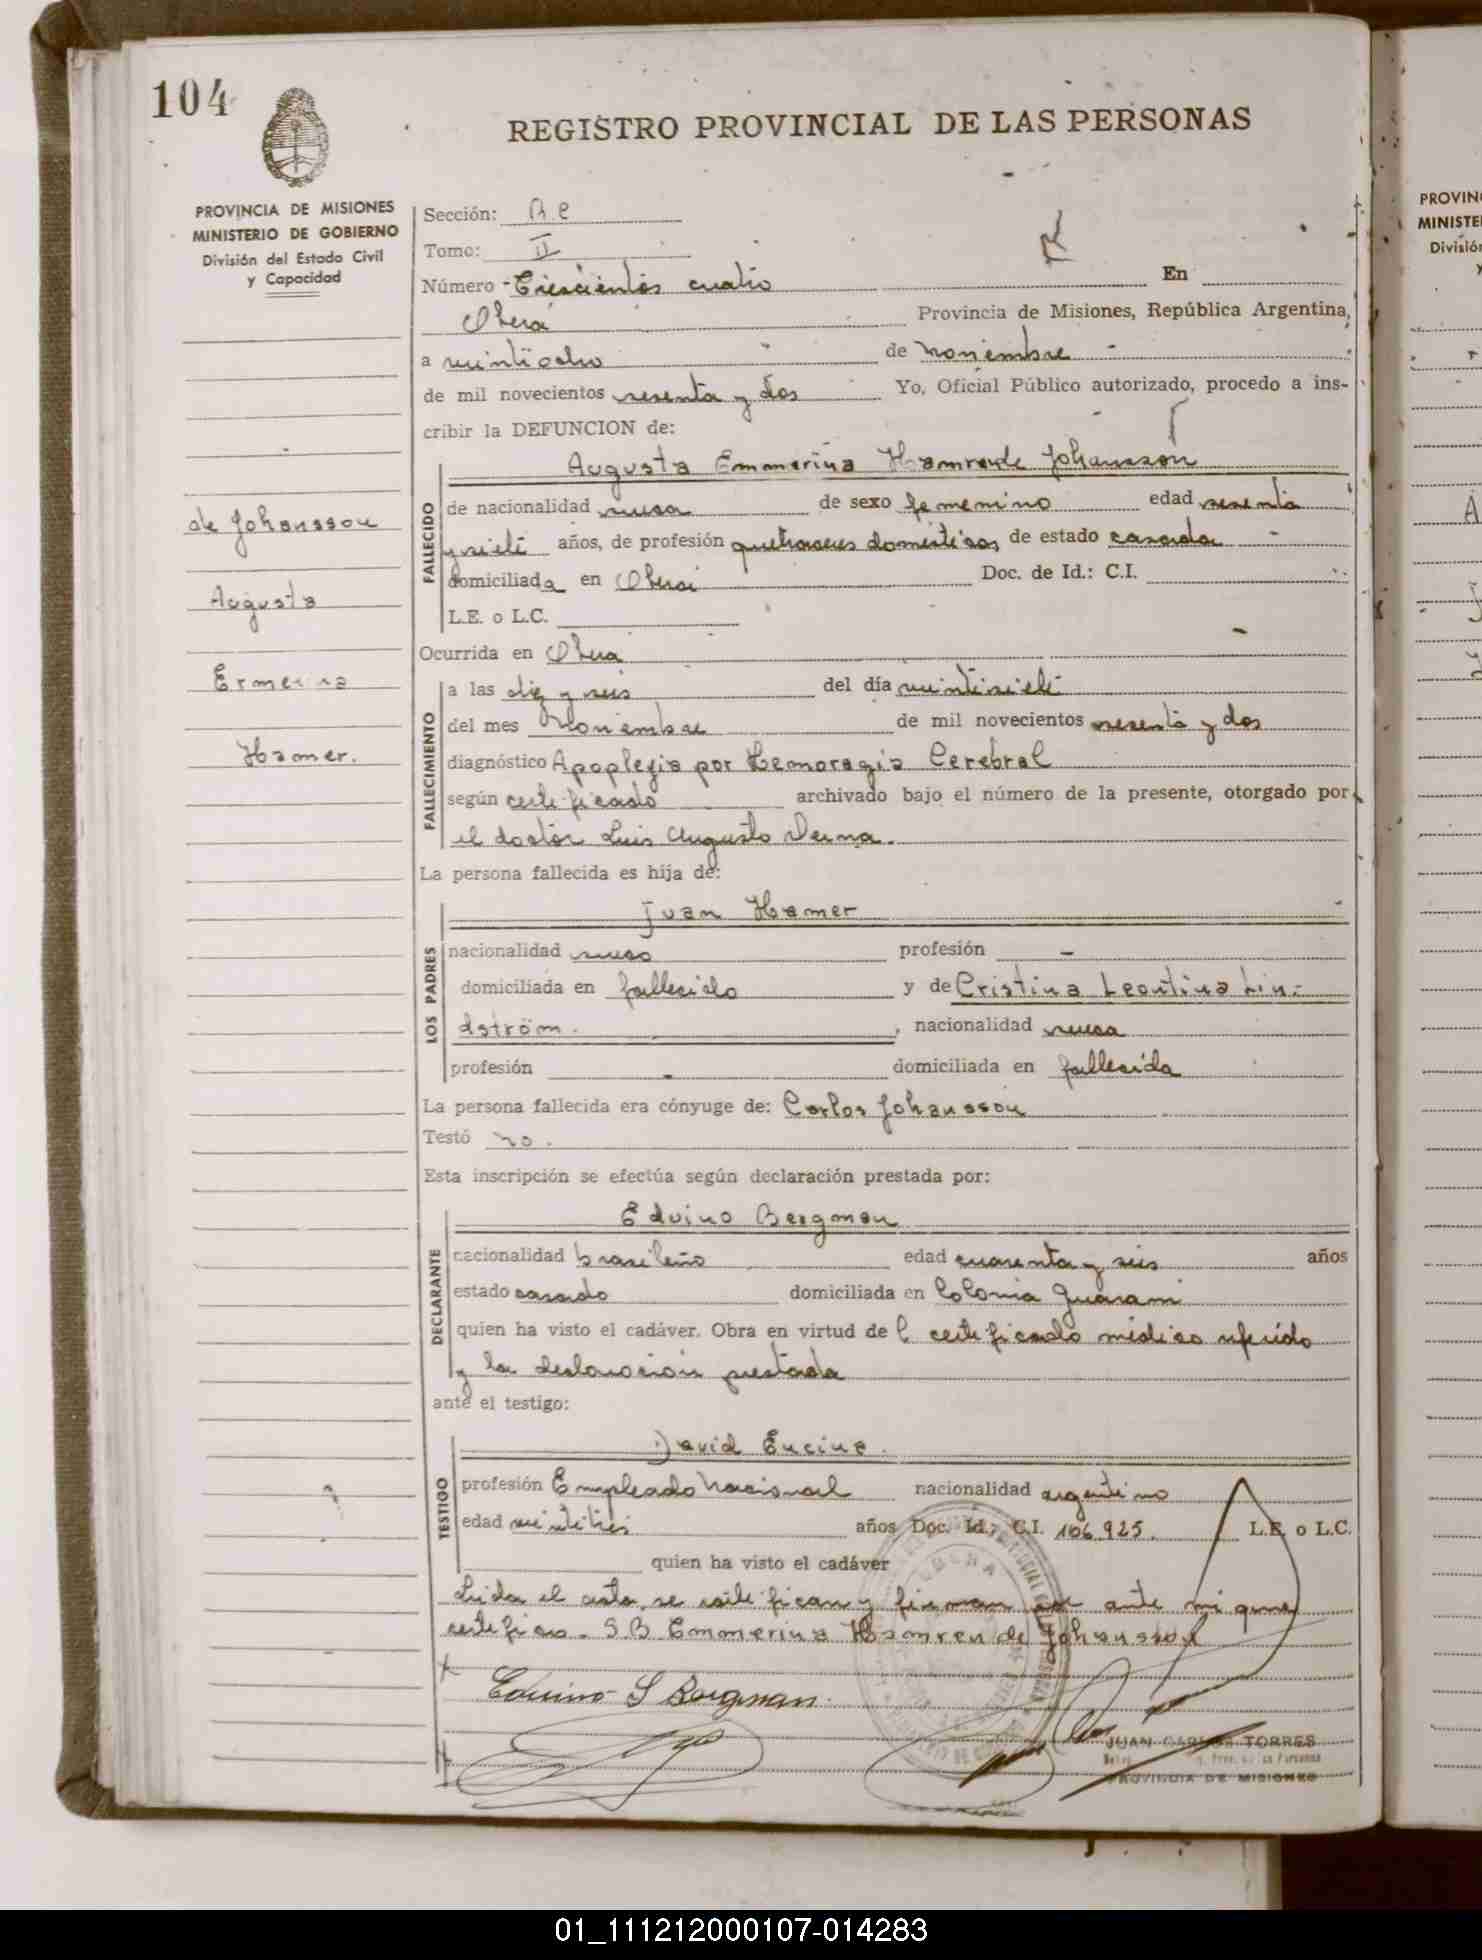 104
REGISTRO PROVINCIAL DE LAS PERSONAS
PROVINCIA DE MISIONES
MINISTERIO DE GOBIERNO
División del Estado Civil
y Capacidad
de Johansson
Augusta
Ermerina
Hamer.
Sección:
Tomo: II
Número Trescientos cuatro En
Oberá Provincia de Misiones, República Argentina,
a veintiocho de noviembre
de mil novecientos sesenta y dos Yo, Oficial Público autorizado, procedo a ins-
cribir la DEFUNCION de:
Augusta Emmerina Hamrende Johansson
FALLECIDO
de nacionalidad rusa de sexo femenino edad sesenta
y siete años, de profesión quehaceres domésticos de estado casada
domiciliada en Oberá Doc. de Id.: C.I.
L.E. o L.C.
Ocurrida en Oberá
FALLECIMIENTO
a las diez y seis del día veintisiete
del mes Noviembre de mil novecientos sesenta y dos
diagnóstico Apoplegia por Hemoragia Cerebral
según certificado archivado bajo el número de la presente, otorgado por
el doctor Luis Augusto Derna.
La persona fallecida es hija de:
LOS PADRES
Juan Hamer
nacionalidad ruso profesión -
domiciliada en fallecido y de Cristina Leontina Lin-
dström. , nacionalidad rusa
profesión - domiciliada en fallecida
La persona fallecida era cónyuge de: Carlos Johansson
Testó no.
Esta inscripción se efectúa según declaración prestada por:
DECLARANTE
Edvino Bergman
nacionalidad brasileño edad cuarenta y seis años
estado casado domiciliada en Colonia Guaraní
quien ha visto el cadáver. Obra en virtud de l certificado médico referido
y la declaración prestada
ante el testigo:
TESTIGO
David Encina.
profesión Empleado Nacional nacionalidad argentino
edad veintitrés años Doc. Id.: C.I. 106.925. L.E. o L.C.
quien ha visto el cadáver
Leida el acta, se ratifican y firman por ante mi que
certifico. S.B. Emmerina Hamren de Johansson
Edvino S Bergman.
JUAN CARLOS TORRES
PROVINCIA DE MISIONES
PROVIN
MINISTE
División
y
01_111212000107-014283